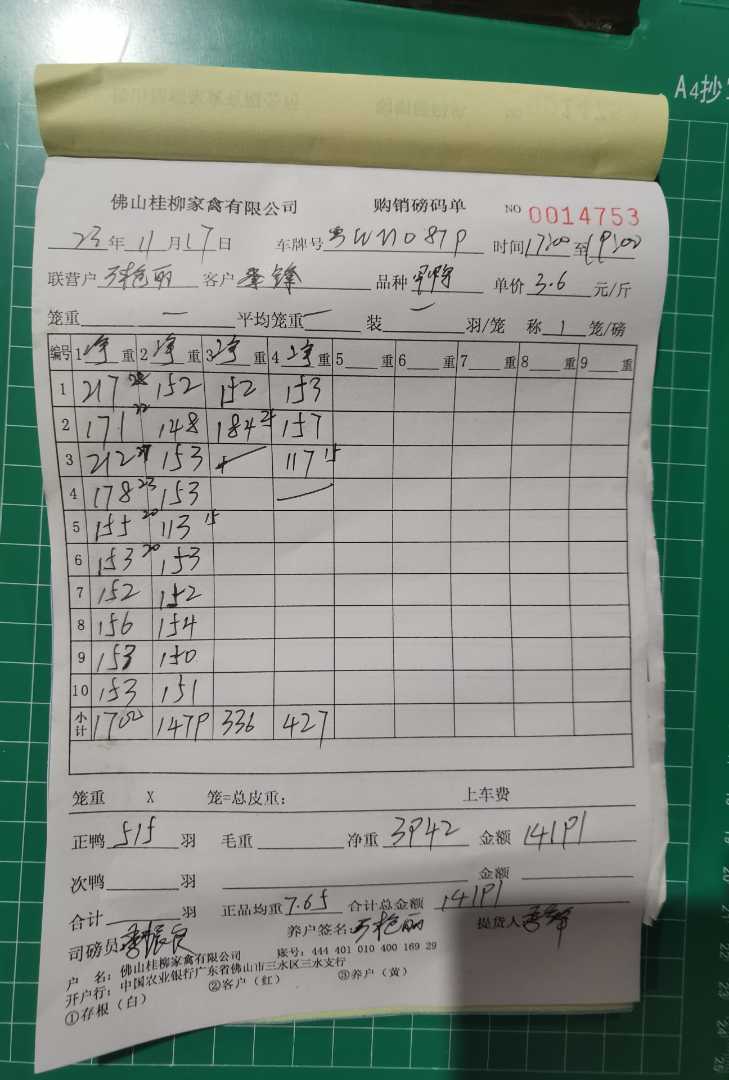 A4抄
佛山桂柳家禽有限公司 购销磅码单 NO 0014753
23年11月17日 车牌号 粤WN087P 时间17:00至19:00
联营户 客户 李锋 品种 单价3.6元/斤
笼重 — 平均笼重 — 装 — 羽/笼 称 1 笼/磅
编号 1净重 2净重 3净重 4净重 5 重 6 重 7 重 8 重 9 重
1 217 28 152 152 153
2 171 22 148 184 24 157
3 212 27 153 117 15
4 178 23 153 —
5 155 20 113 15
6 153 20 153
7 152 152
8 156 154
9 153 150
10 153 151
小计 1700 1479 336 427
笼重 X 笼=总皮重： 上车费
正鸭 515 羽 毛重 净重 3942 金额 14191
次鸭 羽 金额
合计 羽 正品均重 7.65 合计总金额 14191
司磅员 李振良 养户签名： 提货人 李锋
户 名：佛山桂柳家禽有限公司 账号：444 401 010 400 169 29
开户行：中国农业银行广东省佛山市三水区三水支行
①存根（白） ②客户（红） ③养户（黄）